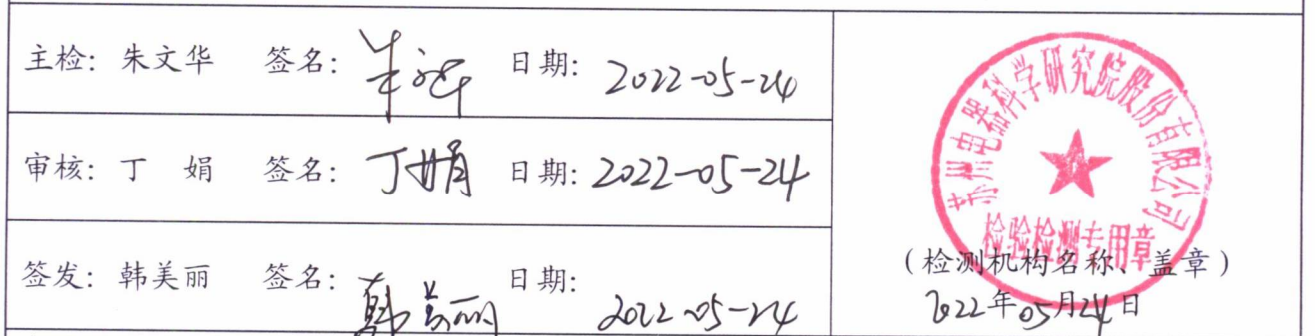 主检: 朱文华 签名: 朱文华 日期: 2022-05-24
审核: 丁 娟 签名: 丁娟 日期: 2022-05-24
签发: 韩美丽 签名: 韩美丽 日期: 2022-05-24
苏州电器科学研究院股份有限公司
检验检测专用章
(检测机构名称、盖章)
2022年05月24日